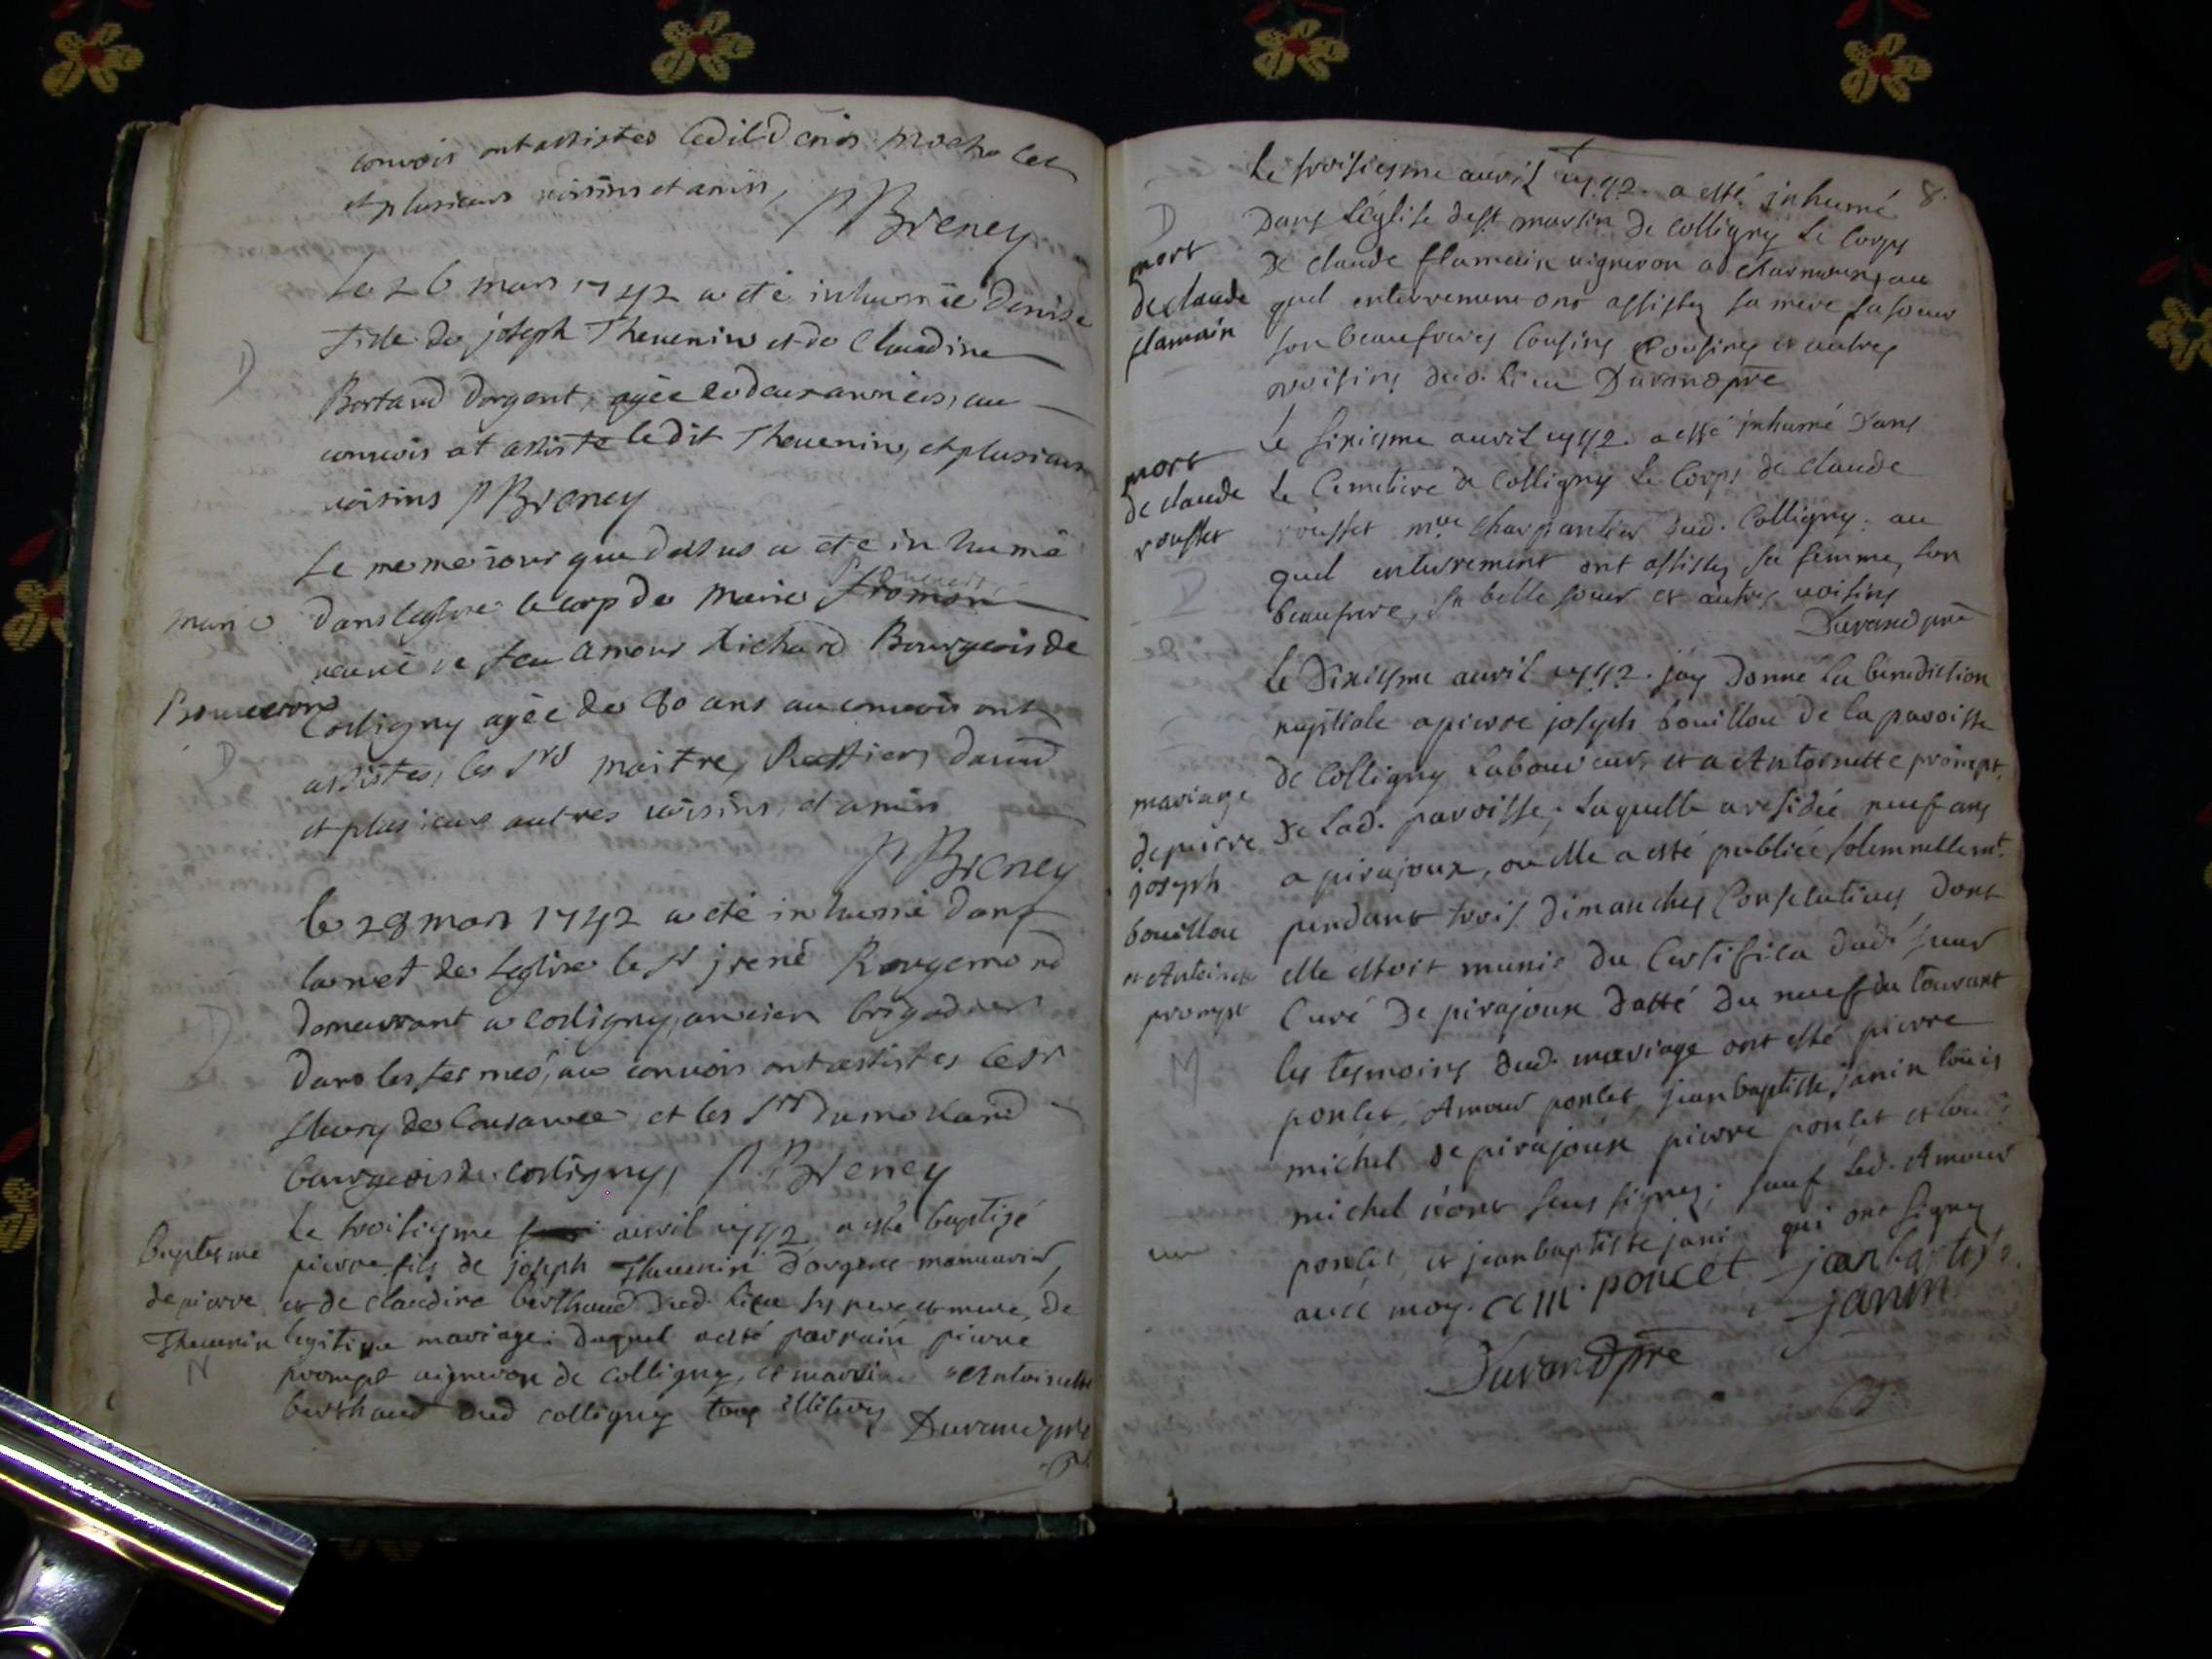 convois ont assistes ledit denis
et plusieurs voisins et amis,
P Breney
Le 26 mars 1742 a eté inhumée denise
fille de joseph Thevenin et de Claudine
Bertaud dorgent, agée de deux années, au
convois at assisté ledit Thevenin, et plusieurs
voisins P Breney
Le meme iour que dessus a ete inhumé
dans leglise le corp de Marie
veuve de feu amour Richard Bourgeois de
Coligny agée de 80 ans au convois ont
assistes, les Srs maitre, david
et plusieurs autres voisins, et amis
P Breney
le 28 mars 1742 a eté inhumé dans
la nef de leglise le Sr jrené Rougemond
demeurant a coligny, ancien brigadier
dans les fermes, au convois ont assistes le Sr
fleury de et les Srs dumollard
bourgeois de coligny, P Breney
Baptesme
de pierre
Thevenin
N
le troisiesme avril 1742 a esté baptizé
pierre fils de joseph Thevenin d'orgent manouvrier,
et de claudine berthaud dud. lieu ses pere et mere, de
legitime mariage; duquel a esté parrain pierre
prompt vigneron de colligny, et Antoinette
berthaud dud colligny tous illiteres Durand ptre
8.
mort
de claude
flamain
D
Le troisiesme avril 1742. a esté inhumé
Dans L'église de st martin de Colligny Le Corps
De claude flamain vigneron a charmoux, au
quel enterrement ont assistez sa mere sa soeur
son beaufrere, Cousins Cousines et autres
voisins dud. lieu Durand ptre
mort
de claude
rousset
Le sixiesme avril 1742. a esté inhumé Dans
Le Cemetiere de Colligny Le Corps de claude
rousset mtre charpantier dud. Colligny. au
quel enterrement ont assistez sa femme, son
beaufrere, sa belle soeur et autres voisins
Durand ptre
mariage
de pierre
joseph
bouillou
et Antoinette
prompt
M
Le Dixiesme avril 1742. j'ay Donné La benediction
nuptiale a pierre joseph bouillou de la paroisse
de Colligny Laboureur, et a Antoinette prompt,
de Lad. paroisse; Laquelle a residée neuf ans
a pirajoux, ou elle a esté publiée solemnellemt.
pendant trois Dimanches Consecutives Dont
elle estoit munie du Certifica dud. sieur
Curé De pirajoux Datté Du neuf du Courant
les tesmoins dud. mariage ont esté pierre
poncet, Amour poncet, jean baptiste janin louis
michel de pirajoux pierre poncet et louis
michel n'ont sceus signer; sauf Led. Amour
poncet, et jean baptiste janin qui ont signez
avec moy. am. poncet jean baptiste
janin
Durand ptre